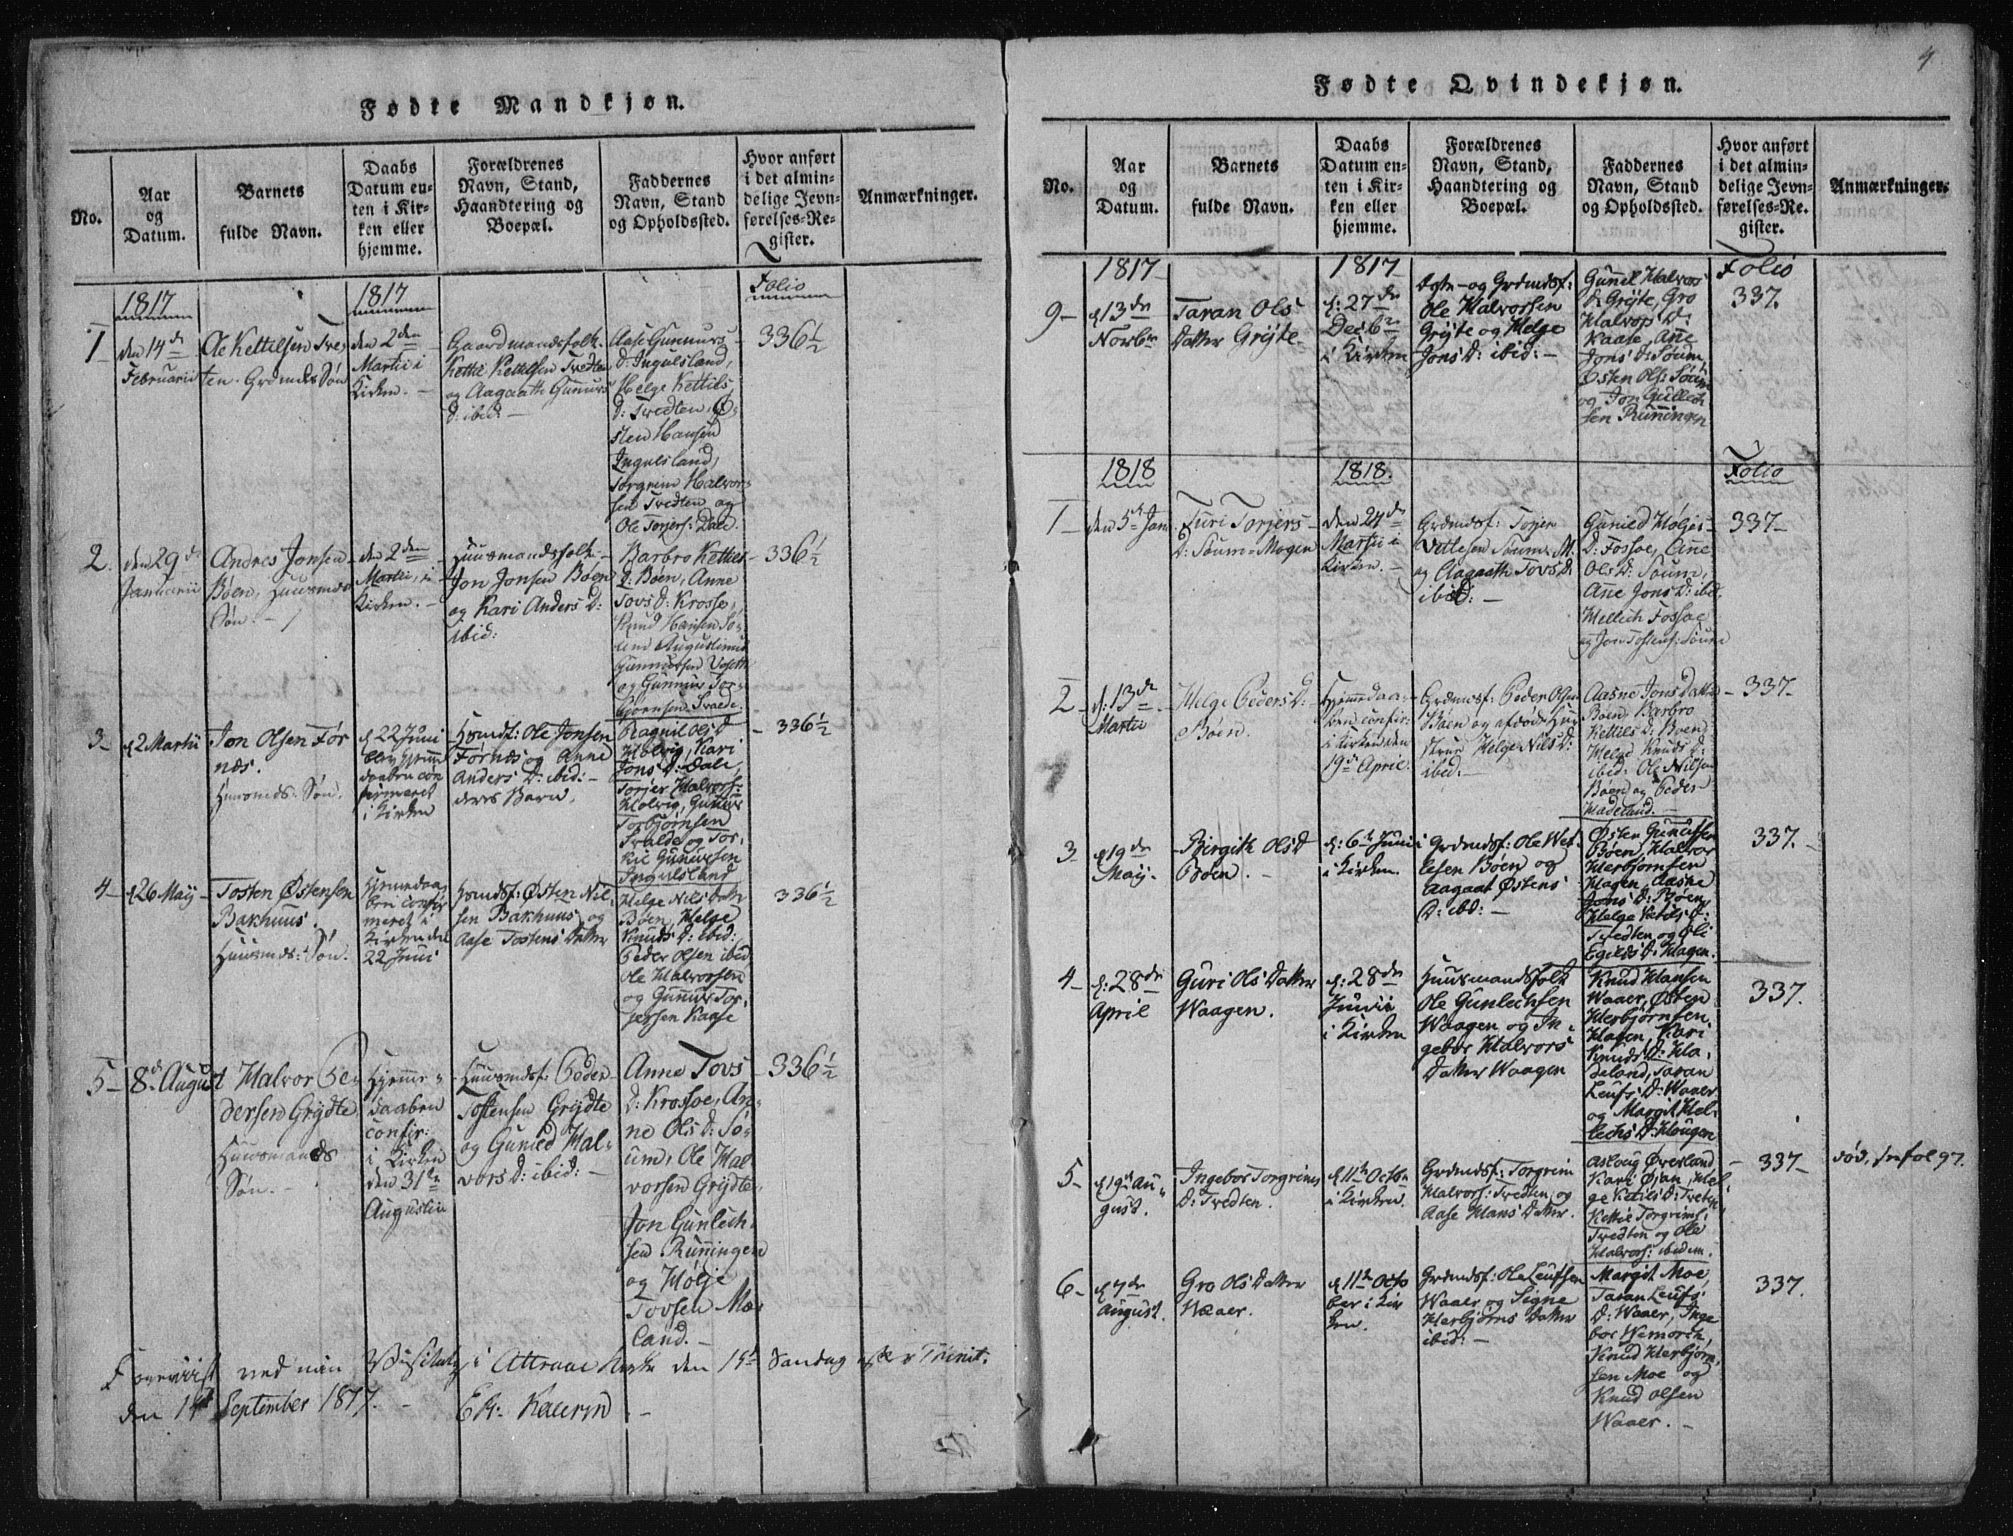 Fødte Mandkjøn.
No.
Aar
og
Datum.
Barnets
fulde Navn.
Daabs
Datum en-
ten i Kir-
ken eller
hjemme.
Forældrenes
Navn, Stand,
Haandtering og
Boepæl.
Faddernes
Navn, Stand
og Opholdssted.
Hvor anført
i det almin-
delige Jevn-
førelses-Re-
gister.
Anmærkninger.
1817
1817
Folio
1
den 14de
Februarii
Ole Kettelsen Tve-
ten. Grdmds Søn
den 2den
Martii i
Kirken. -
Gaardmandsfolk
Kettil Kettelsen Tvedten
og Aagaath Gunnurs
D: ibid: -
Aase Gunnurs
D: Ingulsland,
Helge Kettils
D: Tvedten, Ø-
sten Hansen
Ingulsland,
Torgrim Halvor-
sen Tvedten og
Ole Torjers: Dale.
336½
2.
den 29de
Januarii
Andres Jonsen
Bøen, Huusmds
Søn. -
den 2den
Martii, i
Kirken. -
Huusmandsfolk -
Jon Jonsen Bøen
og Kari Anders D:
ibid:
Barbro Kettils
D: Bøen, Anne
Tovs D: Krosso,
Knud Hansen
Augustinus
Gunnursen
og Gunnur Tor-
bjørnsen Traede.
336½
3-
d 2 Martii
Jon Olsen Før
næs.
Huusmds: Søn.
d 22 Juni
blev hjemme
daaben con
firmeret
i Kirken
Hsmdf: Ole Jonsen
Førnæs og Anne
Anders D: ibid: -
deres Barn.
Ragnil Ols D
Holvig, Kari
Jons D: Dale,
Torjer Halvors:
Holvig, Gunnur
Torbjørnsen
Traède og Tor-
Gunnursen
Ingulsland
336½
4-
d 26 May
Tosten Østensen
Bakhuus.
Huusmds: Søn.
Hjemedaa
ben confir
meret i
Kirken den
22 Juni
Hsmdsf: Østen Nil-
sen Bakhuus og
Aase Tostens Datter
Helge Nils Datt
Bøen, Helge
Knuds D: ibid:
Peder Olsen ibid
Ole Halvorsen
og Gunnur Tor-
jersen Kaase
336½
5-
8de August
Halvor Pe-
dersen Grydte
Huusmands
Søn. -
Hjemme-
daaben
confir:
i Kirken
den 31te
Augustii
Huusmdsf: Peder
Tostensen Grydte
og Gunild Hal-
vors D: ibid: -
Anne Tovs
D: Krossoe, An-
ne Ols D: So-
um, Ole Hal
vorsen Grydte,
Jon Gunlech-
sen Runningen
og Hølje
Tovsen Mæ-
land. -
336½
Foreviist ved min Visitatz i Attraae Kirke den 15de Søndag efter Trinit.
den 14de September 1817. -
4
Fødte Qvindekjøn.
No.
Aar
og
Datum.
Barnets
fulde Navn.
Daabs
Datum en-
ten i Kir-
ken eller
hjemme.
Forældrenes
Navn, Stand,
Haandtering og
Boepæl.
Faddernes
Navn, Stand
og Opholdssted.
Hvor anført
i det almin-
delige Jevn-
førelses-Re-
gister.
Anmærkninger.
1817
1817
Folio
9-
d 13de
Novbr
Taran Ols
Datter Gryte
d: 27de
Decbr
i Kirken
og Grdmdsf:
Ole Halvorsen
Gryte og Helge
Jons D: ibid: -
Gunnil Halvors
D: Gryte, Gro
Halvors D:
Kaase, Ane
Jons D: Soum
Østen Ols: Soum
og Jon Gullech
sen Runningen
337.
1818
1818.
Folio
1-
den 5te Jan:
Turi Torjers-
D: Soum-Mogen
den 24de
Martii i
Kirken. -
Grdmdsf: Torjer
Vetlesen Soum. M.
og Aagaath Tovs D:
ibid: -
Gunild Høljes-
D: Fossoe, Ane
Ols D: Soum,
Ane Jons D: ibid,
Mellech Fossoe
og Jon Tostens: Soum
337-
2-
d: 13de
Martii
Helge Peders D:
Bøen.
Hjemmedaa-
ben confir:
i Kirken den
19de April
Grdmdsf: Peder Olsen
Bøen og afdøde Hu-
strue Helge Nils D:
ibid. -
Aasne Jons Datter
Bøen, Barbro
Kettils D: Bøen,
Helge Knuds D:
ibid: Ole Nilsen
Bøen og Peder
Hadeland. -
337-
3
d 19de
May-
Birgith Ols D
Bøen. -
d: 6te Junii
i Kirken.
Grdmdsf: Ole Vet-
lesen Bøen og
Aagaat Østens
D: ibd: -
Østen Gunulfsen
Bøen, Halvor
Herbjørnsen
Hagen, Aasne
Jons D: Bøen
Helge Ketils D:
Tvedten og Oli
Egilds D: Hagen.
337.-
4-
d: 28de
April
Guri Ols Datter
Waagen.
d: 28de
Junii
i Kirken
Huusmandsfolk
Ole Gunlechsen
Waagen og In-
gebor Halvors
Datter Waagen
Knud Hansen
Waaer, Østen
Herbjørnsen
Hagen, Kari
Knuds D: Ha-
deland, Taran
Leufs D: Waaer
og Margit Hel-
lechs D: Hougen
337.
5-
d 19de Au-
gust.
Ingebor Torgrims
D: Tvedten.
d 11te Octbr
i Kirken.
Grdmdsf: Torgrim
Halvors: Tvedten, og
Aase Hans Datter.
Aslaug Øverland
Kari Øian, Hel-
ge Ketils D: Tveten,
Kettil Torgrims:
Tvedten og Ole
Halvors: ibidem.
337-
død, see fol 97.
6-
d 7de
August.
Gro Ols Datter
Waaer.
d 11te Octo
ber i Kir
ken.
Grdmdsf: Ole Leufsen
Waaer og Signe
Herbjørns Datter
ibid: -
Margit Moe,
Taran Leufs
D: Waaer, Inge
bor Wemork,
Knud Herbjørn-
sen Moe og
Knud Olsen
Waaer. -
337.